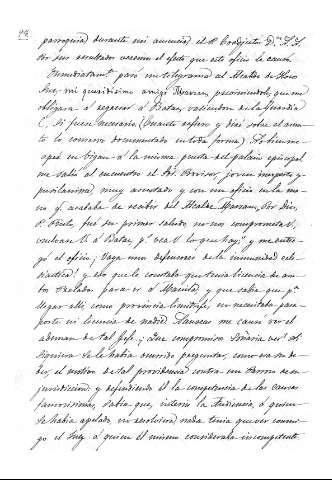 98
parroquia) durante mi ausencia, el P. Coadjutor D.n F. F.
Por sus resultados veremos el efecto que este oficio le causó.
Inmediatam.te pasó un telegrama al Alcalde de Ilocos
Sur, mi queridísimo amigo Marzan, previniéndole, que me
obligara á regresar á Batac, valiéndose de la Guardia
C. si fuese necesario (Cuanto refiero y diré sobre el asunto
lo conservo documentado en toda forma). Yo bien me
apeé en Vigan á la misma puerta del palacio episcopal
me salió al encuentro el Sr. Provisor, joven inexperto y
pusilánime, muy asustado y con un oficio en la mano
q. acababa de recibir del Alcalde Marzan. Por Dios,
P. Pinto, fué su primer saludo, no nos comprometa V.
vuélvase V. á Batac, p.a vea V. lo que hay; y me entregó
el oficio; Vaya unos defensores de la inmunidad eclesiástica!
y eso que le constaba que tenía licencia de ambos
Prelados para ir á Manila; y que sabía que p.a
llegar allí como provincia limítrofe, no necesitaba pasaporte
ni licencia de nadie. Llanezas me causó ver el
ademan de tal Jefe. ¡Que compromiso Señoría ver! Ni
siquiera se le había ocurrido preguntar, como era su deber,
el motivo de tal providencia contra un párroco de su
jurisdicción: y defendiendo él la competencia de las causas
famosísimas, sabía que, interin la Audiencia, á quien
se había apelado, no resolviera nada tenía que ver conmigo
el Juez á quien él mismo consideraba incompetente